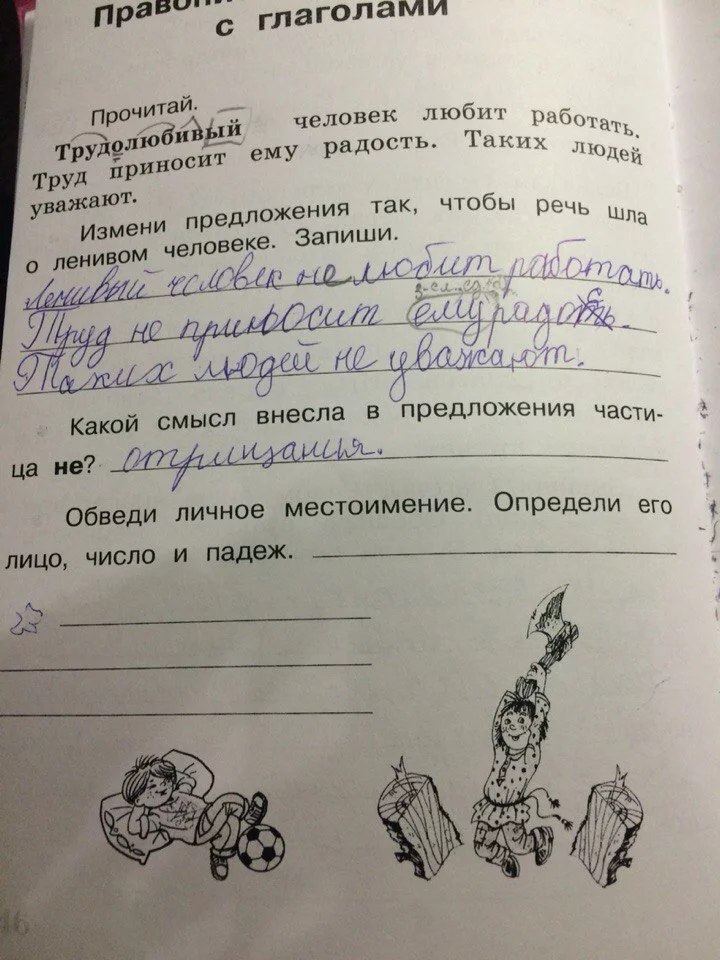 с глаголами
Прочитай.
Трудолюбивый человек любит работать.
Труд приносит ему радость. Таких людей
уважают.
Измени предложения так, чтобы речь шла
о ленивом человеке. Запиши.
Ленивый человек не любит работать.
Труд не приносит ему радость.
Таких людей не уважают.
Какой смысл внесла в предложения части-
ца не? отрицания.
Обведи личное местоимение. Определи его
лицо, число и падеж.